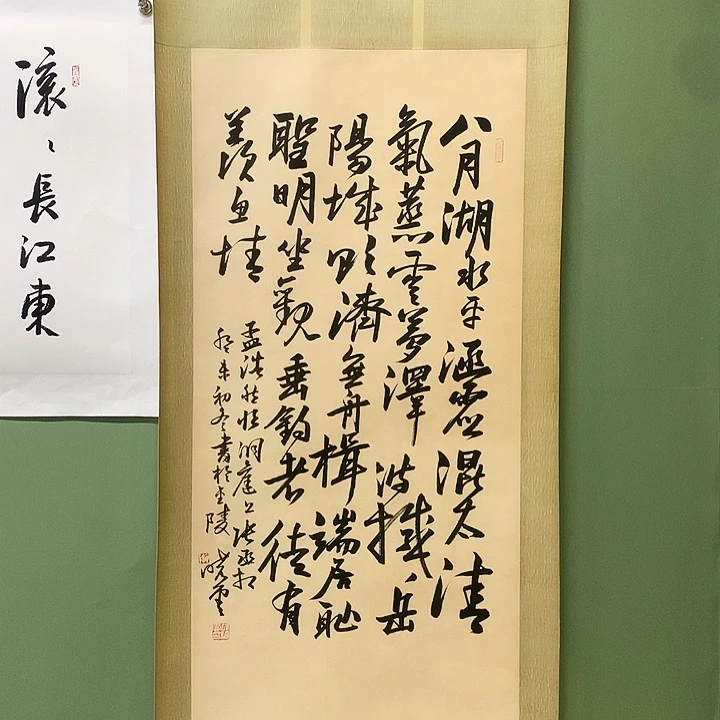 八月湖水平涵虛混太清
氣蒸雲夢澤波撼岳
陽城欲濟無舟楫端居恥
聖明坐觀垂釣者徒有
羨魚情
孟浩然洞庭上張丞相
癸未初冬書於金陵
曉雲
滾〻長江東